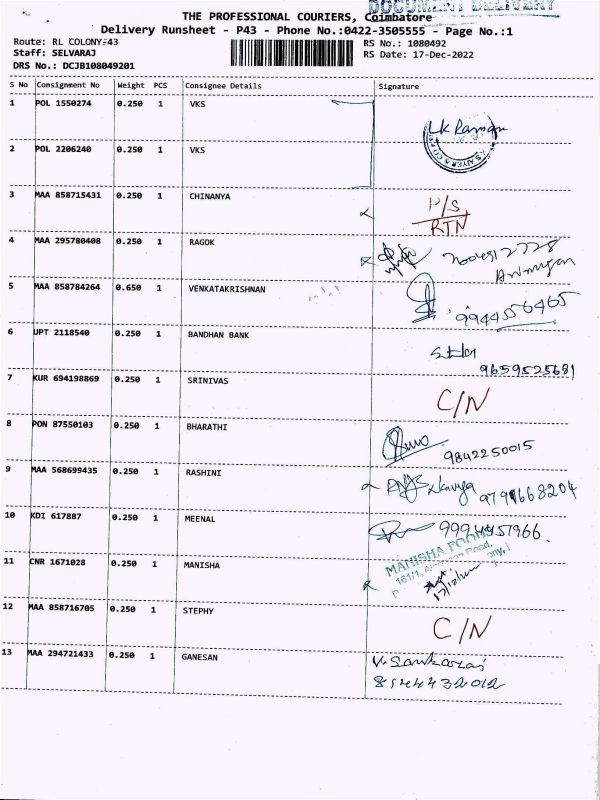 DOCUMENT DELIVERY
THE PROFESSIONAL COURIERS, Coimbatore
Delivery Runsheet - P43 - Phone No.:0422-3505555 - Page No.:1
Route: RL COLONY-43 RS No.: 1080492
Staff: SELVARAJ RS Date: 17-Dec-2022
DRS No.: DCJB108049201
S No Consignment No Weight PCS Consignee Details Signature
1 POL 1550274 0.250 1 VKS
2 POL 2206240 0.250 1 VKS
3 MAA 858715431 0.250 1 CHINANYA P/S
RTN
4 MAA 295780408 0.250 1 RAGOK
5 MAA 858784264 0.650 1 VENKATAKRISHNAN 9944556465
6 UPT 2118540 0.250 1 BANDHAN BANK
9659525681
7 KUR 694198869 0.250 1 SRINIVAS C/N
8 PON 87550103 0.250 1 BHARATHI 9842250015
9 MAA 568699435 0.250 1 RASHINI
10 KDI 617887 0.250 1 MEENAL
11 CNR 1671028 0.250 1 MANISHA MANISHA FOODS
161/1,
12 MAA 858716705 0.250 1 STEPHY C/N
13 MAA 294721433 0.250 1 GANESAN V. Sankaraj
8144432012